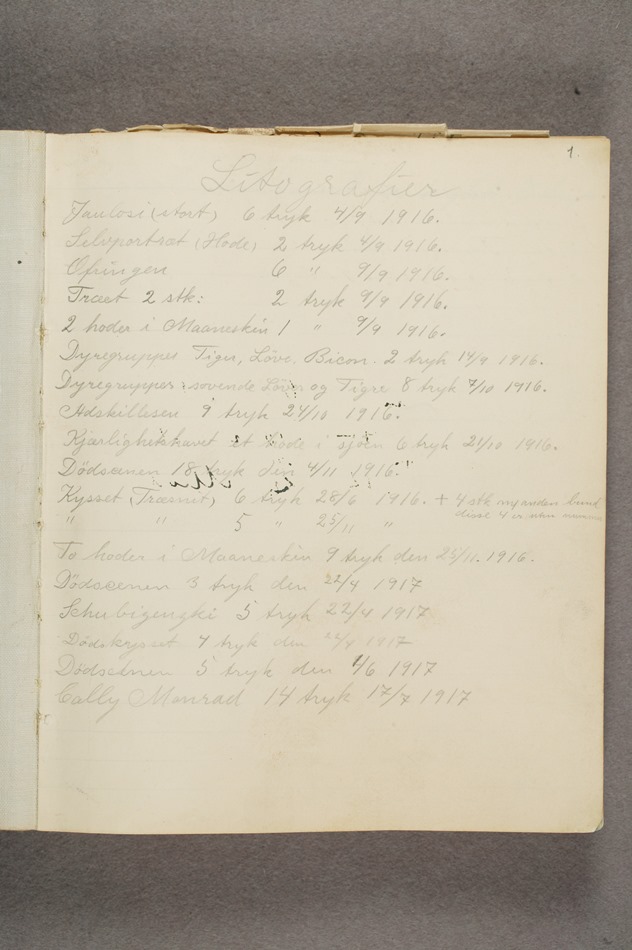 1.
Litografier
Jaulosi (stort) 6 tryk 4/9 1916.
Selvportræt (Hode) 2 tryk 4/9 1916.
Ofringen 6 " 9/9 1916.
Træet 2 stk: 2 tryk 9/9 1916.
2 hoder i Maaneskin 1 " 9/9 1916.
Dyregrupper Tiger, Löve, Bison. 2 tryk 14/9 1916.
Dyregrupper: sovende Löve og Tigre 8 tryk 7/10 1916.
Adskillesen 9 tryk 24/10 1916.
Kjærlighetshavet et hode i sjöen 6 tryk 21/10 1916.
Dödscenen 18 tryk den 4/11 1916.
Kysset (Træsnit) 6 tryk 28/6 1916. + 4 stk
" " 5 " 25/11 " disse 4 er uten
To hoder i Maaneskin 9 tryk den 25/11. 1916.
Dödscenen 3 tryk den 22/4 1917
Schubigengki 5 tryk 22/4 1917
Dödskysset 4 tryk den 22/4 1917
Dödscenen 5 tryk den 4/6 1917
Cally Monrad 14 tryk 17/7 1917